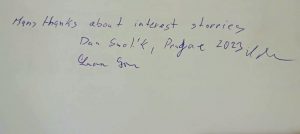 Many thanks about interest storries
Dan Smolík, Prague 2023